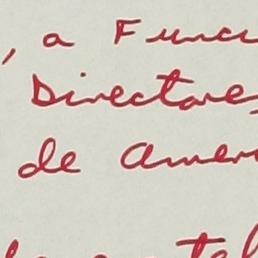 , a Func
Directores
de Amer